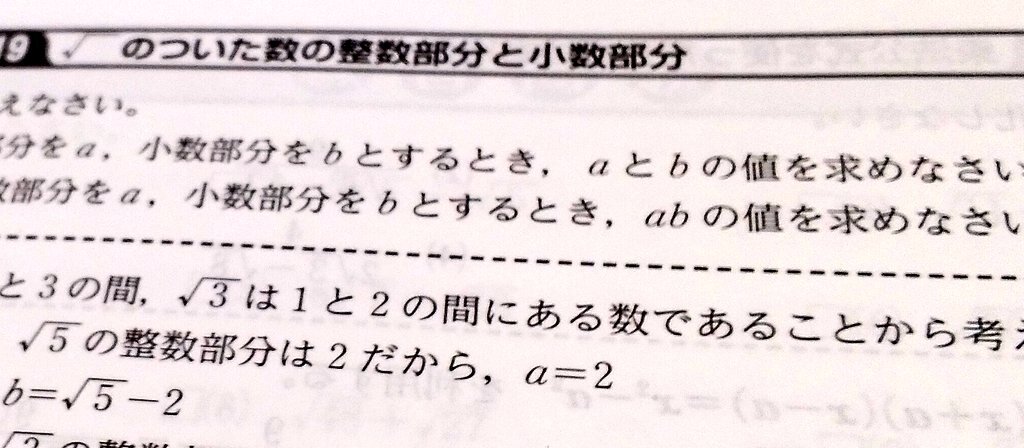 9 √ のついた数の整数部分と小数部分
えなさい。
部分をa，小数部分をbとするとき，aとbの値を求めなさい
数部分をa，小数部分をbとするとき，abの値を求めなさい
と3の間，√3は1と2の間にある数であることから考え
√5の整数部分は2だから，a=2
b=√5-2